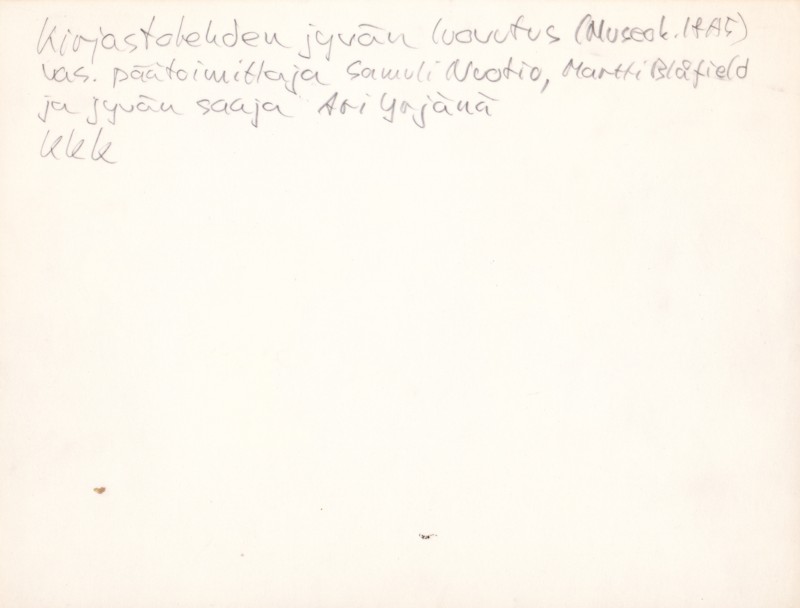 Kirjastolehden jyvän luovutus (Museok. 18A5)
vas. päätoimittaja Samuli Nuotio, Martti Blåfield
ja jyvän saaja Ari Yrjänä
KKK